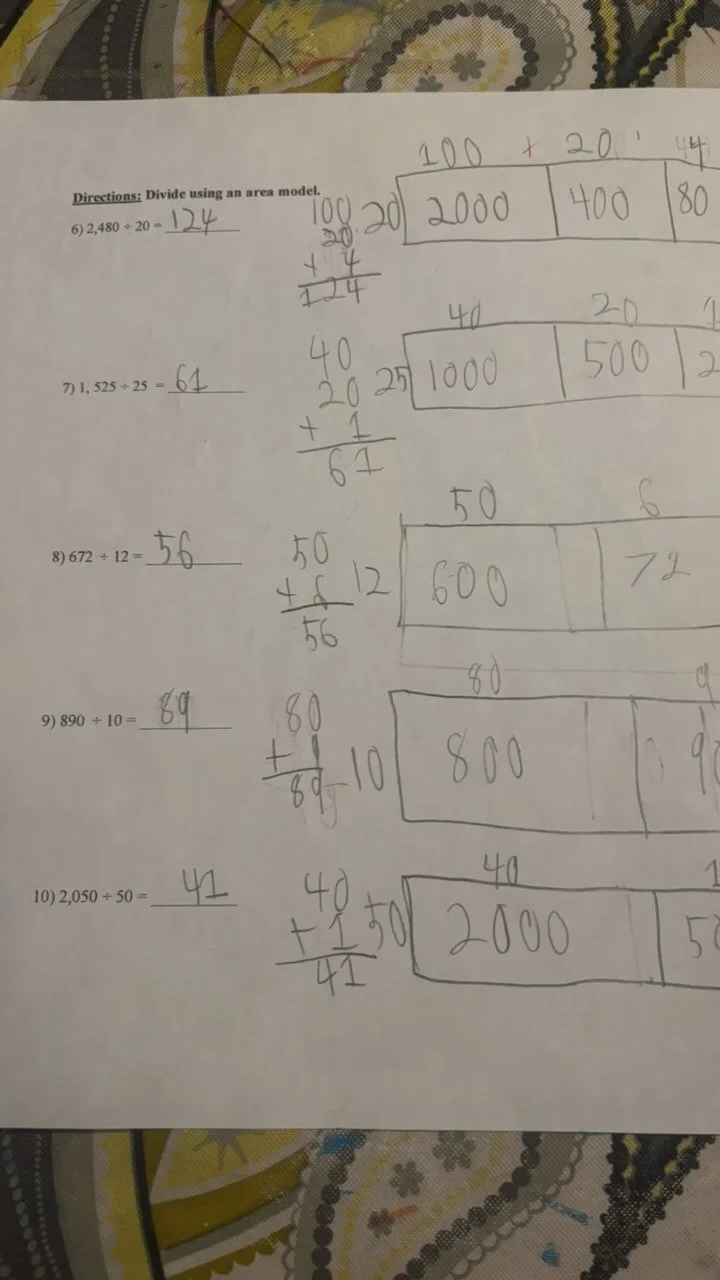 100 + 20 4
Directions: Divide using an area model.
6) 2,480 ÷ 20 = 124
100
20
+ 4
124
20 2000 400 80
40 20 1
7) 1, 525 ÷ 25 = 61
40
20
+ 1
61
25 1000 500 2
50 6
8) 672 ÷ 12 = 56
50
+ 6
56
12 600 72
80 9
9) 890 ÷ 10 = 89
80
+ 9
89
10 800 90
40 1
10) 2,050 ÷ 50 = 41
40
+ 1
41
50 2000 50